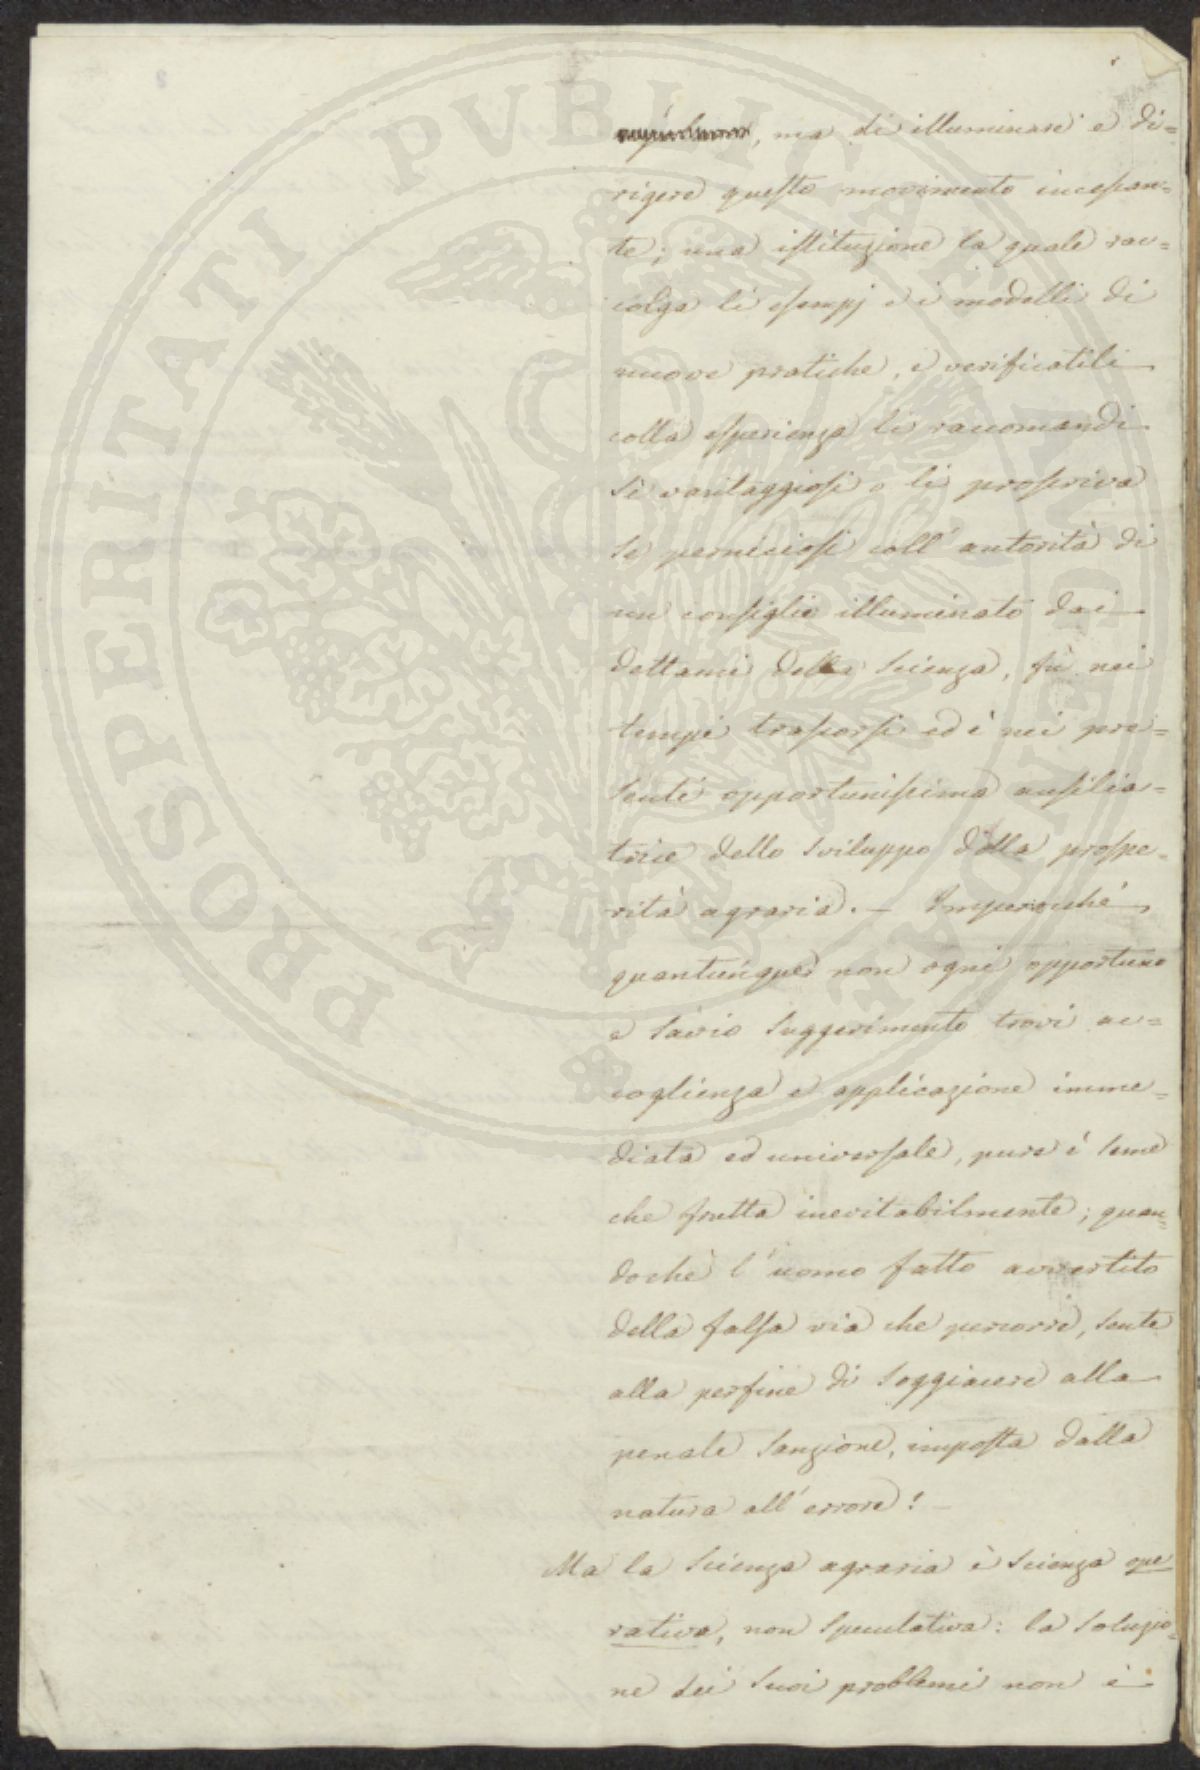 PROSPERITATI PVBLICAE AVGENDAE
, ma di illuminare e di=
rigere questo movimento incessan=
te; una istituzione la quale rac=
colga li esempj e i modelli di
nuove pratiche, e verificatili
colla esperienza li raccomandi
se vantaggiosi o li proscriva
se perniciosi coll' autorità di
un consiglio illuminato dai
dettami della scienza, fù nei
tempi trascorsi ed è nei pre=
senti opportunissima ausilia=
trice dello sviluppo della prospe=
rità agraria. — Imperocché
quantunque non ogni opportuno
e savio suggerimento trovi ac=
coglienza e applicazione imme=
diata ed universale, pure è seme
che frutta inevitabilmente; quan=
dochè l'uomo fatto avvertito
della falsa via che percorre, sente
alla perfine di soggiacere alla
penale sanzione, imposta dalla
natura all'errore! —
Ma la scienza agraria è scienza ope
rativa, non speculativa: la soluzio=
ne dei suoi problemi non è